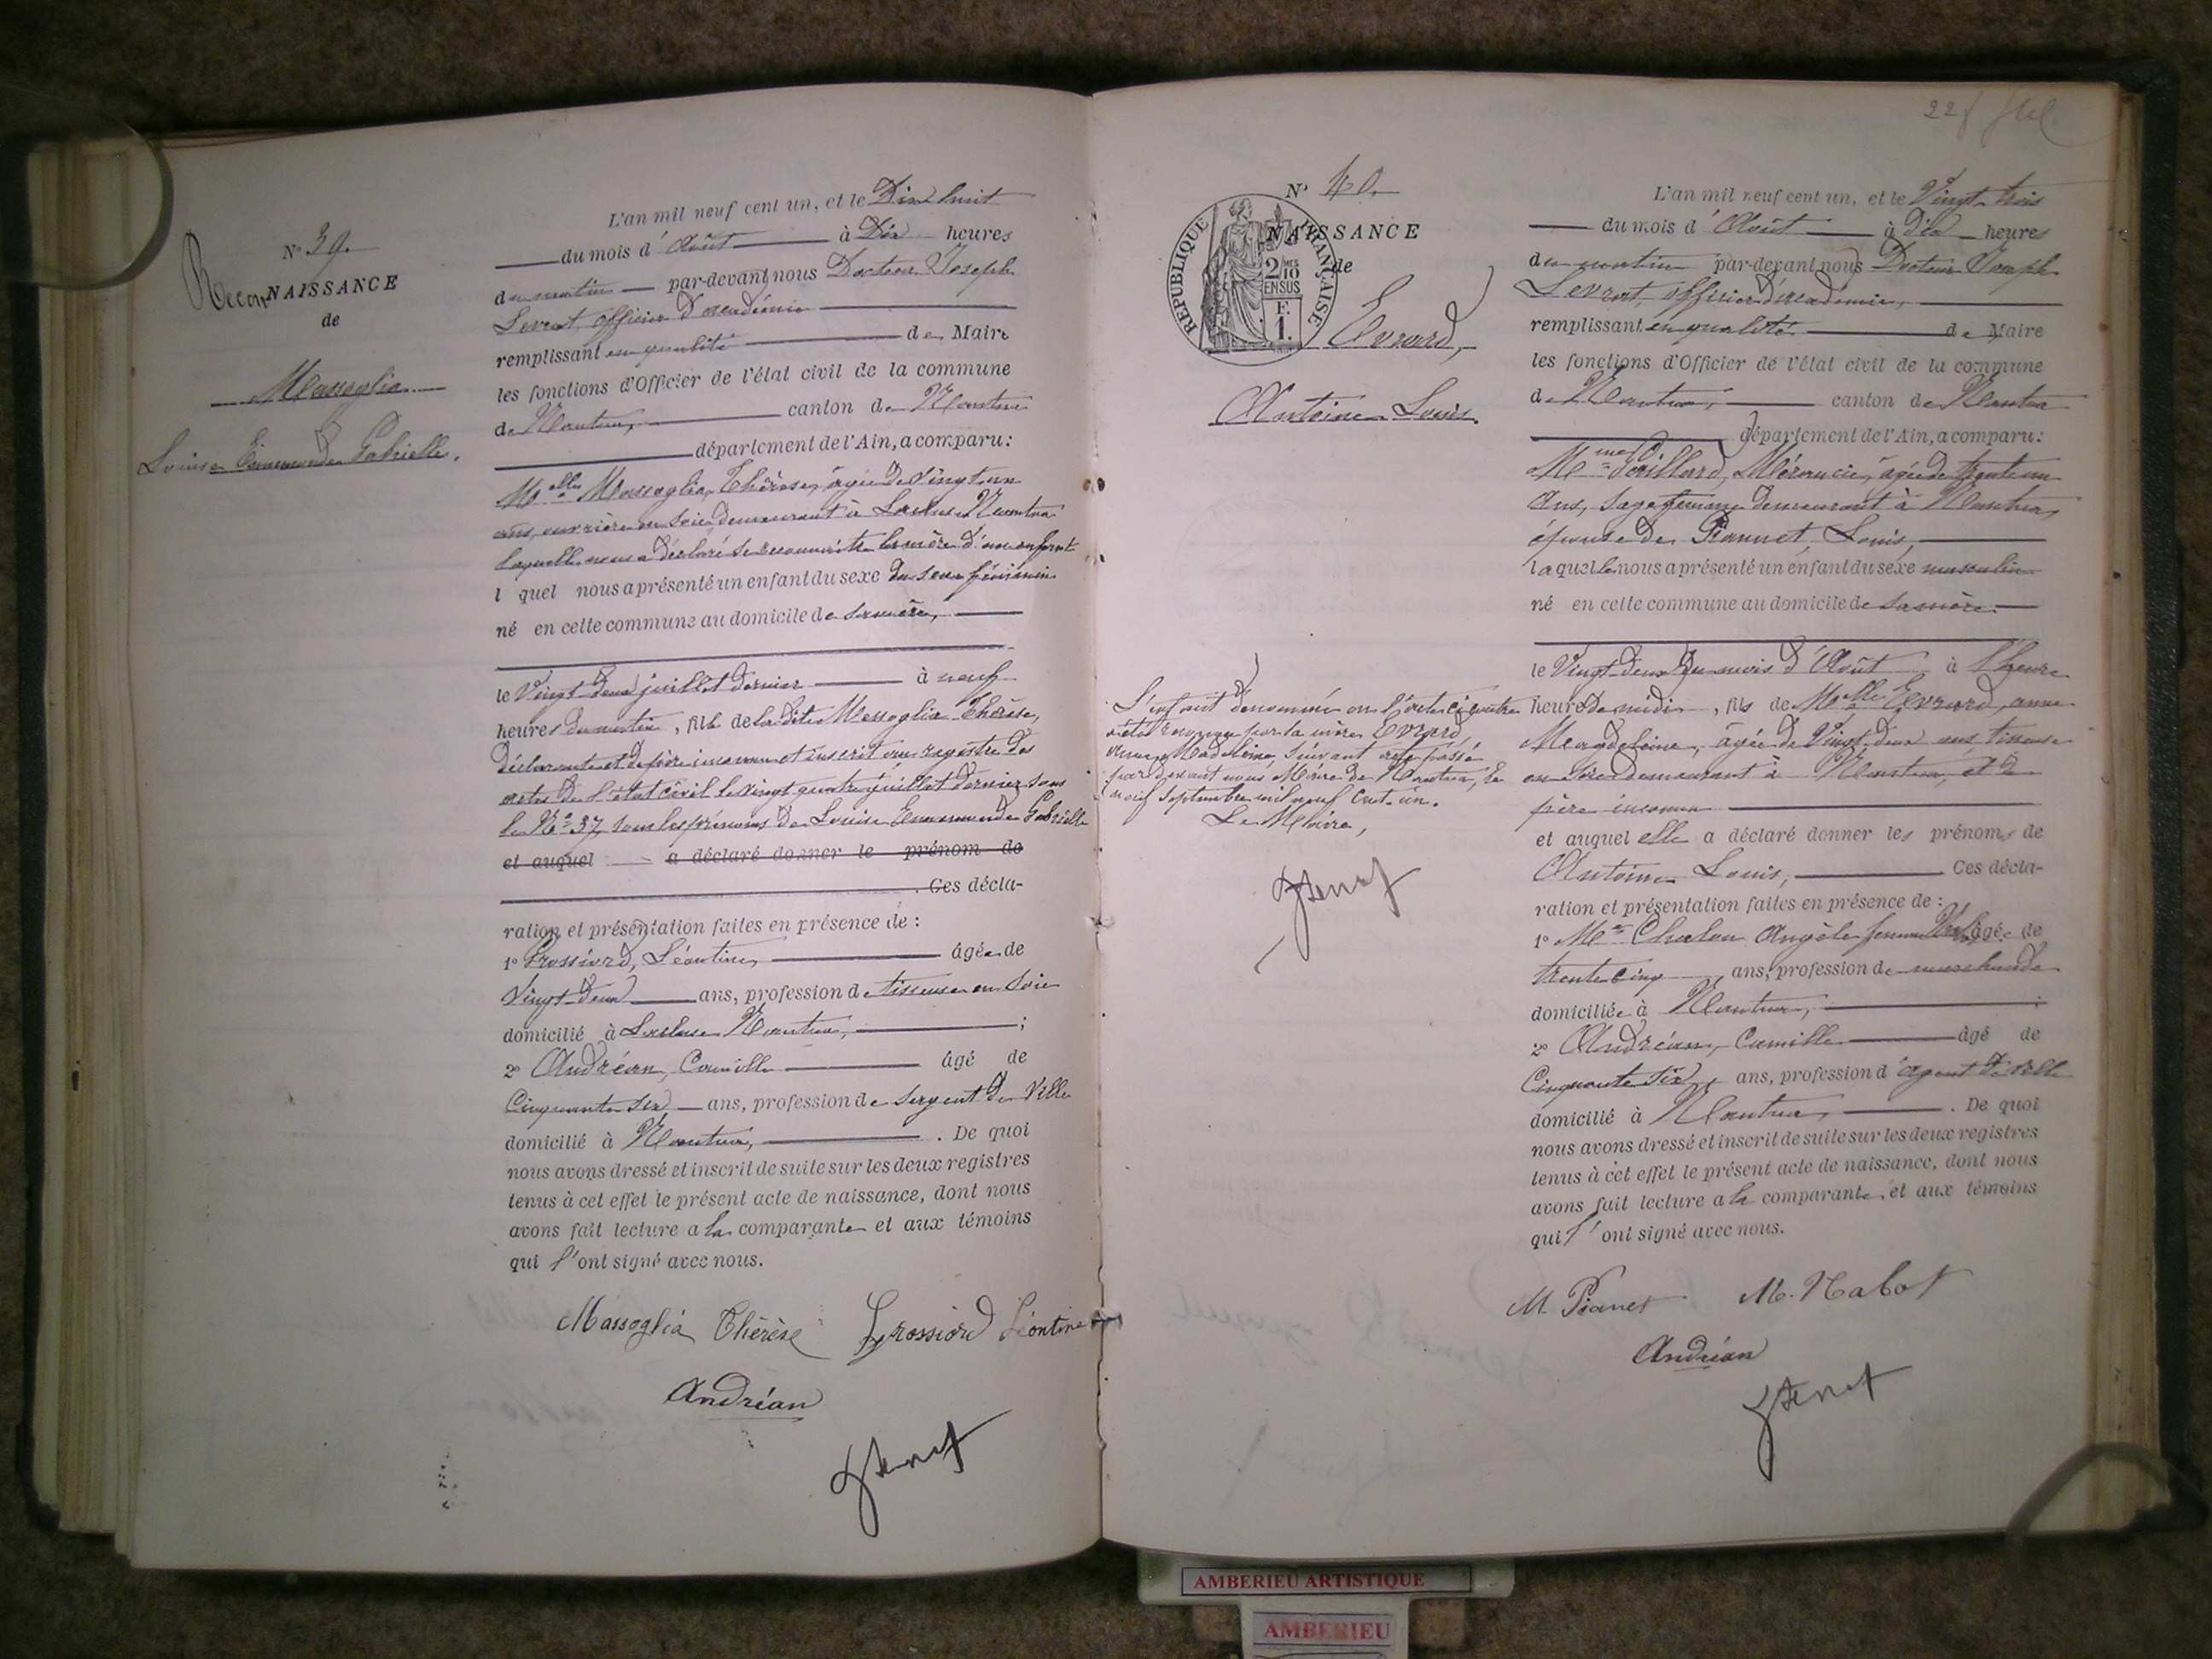 N° 39.
ReconNAISSANCE
de
Massoglia
Louise Emmerande Gabrielle.
L'an mil neuf cent un, et le Dix huit
du mois d'Août à Dix heures
du matin par-devant nous Docteur Joseph
Levrat, officier d'académie
remplissant en qualité de Maire
les fonctions d'Officier de l'état civil de la commune
de Nantua, canton de Nantua
département de l'Ain, a comparu:
Melle Massoglia, Thérèse, âgée de Vingt un
ans, ouvrière en soie, demeurant à Nantua
laquelle nous a déclaré se reconnaître la mère d'un enfant
l quel nous a présenté un enfant du sexe du sexe féminin
né en cette commune au domicile de sa mère,
le Vingt deux juillet dernier à neuf
heures du matin, fille de la dite Massoglia Thérèse,
déclarante et de père inconnu et inscrit aux registres des
actes de l'état civil le vingt quatre juillet dernier sous
le N° 37 sous les prénoms de Louise Emmerande Gabrielle
et auquel a déclaré donner le prénom de
. Ces décla-
ration et présentation faites en présence de :
1° Grossiord, Léontine, âgée de
Vingt deux ans, profession de tisseuse en soie
domicilié à Nantua, ;
2° Andréan, Camille âgé de
Cinquante six ans, profession de sergent de Ville
domicilié à Nantua, . De quoi
nous avons dressé et inscrit de suite sur les deux registres
tenus à cet effet le présent acte de naissance, dont nous
avons fait lecture a la comparante et aux témoins
qui l'ont signé avec nous.
Massoglia Thérèse Grossiord Léontine
Andréan
22
N° 40.
NAISSANCE
de
RÉPUBLIQUE FRANÇAISE
2/10
EN SUS
F.
1.
Evrard,
Antoine Louis.
L'enfant dénommé en l'acte ci contre
a été reconnu par la mère Evrard,
Anne, Madeleine, suivant acte passé
par devant nous Maire de Nantua, le
neuf Septembre mil neuf cent un.
Le Maire,
L'an mil neuf cent un, et le Vingt trois
du mois d'Août à dix heures
du matin par-devant nous Docteur Joseph
Levrat, officier d'académie,
remplissant en qualité de Maire
les fonctions d'Officier de l'état civil de la commune
de Nantua, canton de Nantua
département de l'Ain, a comparu:
Mme âgée de trente un
ans, Sage femme demeurant à Nantua,
épouse de Louis,
laquelle nous a présenté un enfant du sexe masculin
né en cette commune au domicile de sa mère.
le Vingt deux du mois d'Août à l'heure
heure de midi, fils de Melle Evrard, Anne
Magdeleine, âgée de Vingt deux ans, tisseuse
en soie demeurant à Nantua, et de
père inconnu
et auquel elle a déclaré donner les prénoms de
Antoine Louis, Ces décla-
ration et présentation faites en présence de :
1° Chalon Angèle femme âgée de
trente cinq ans, profession de marchande
domiciliée à Nantua, ;
2° Andréan, Camille âgé de
Cinquante six ans, profession d'agent de ville
domicilié à Nantua, . De quoi
nous avons dressé et inscrit de suite sur les deux registres
tenus à cet effet le présent acte de naissance, dont nous
avons fait lecture a la comparante, et aux témoins
qui l'ont signé avec nous.
M. Pianet M. Nabot
Andréan
AMBERIEU ARTISTIQUE
AMBERIEU